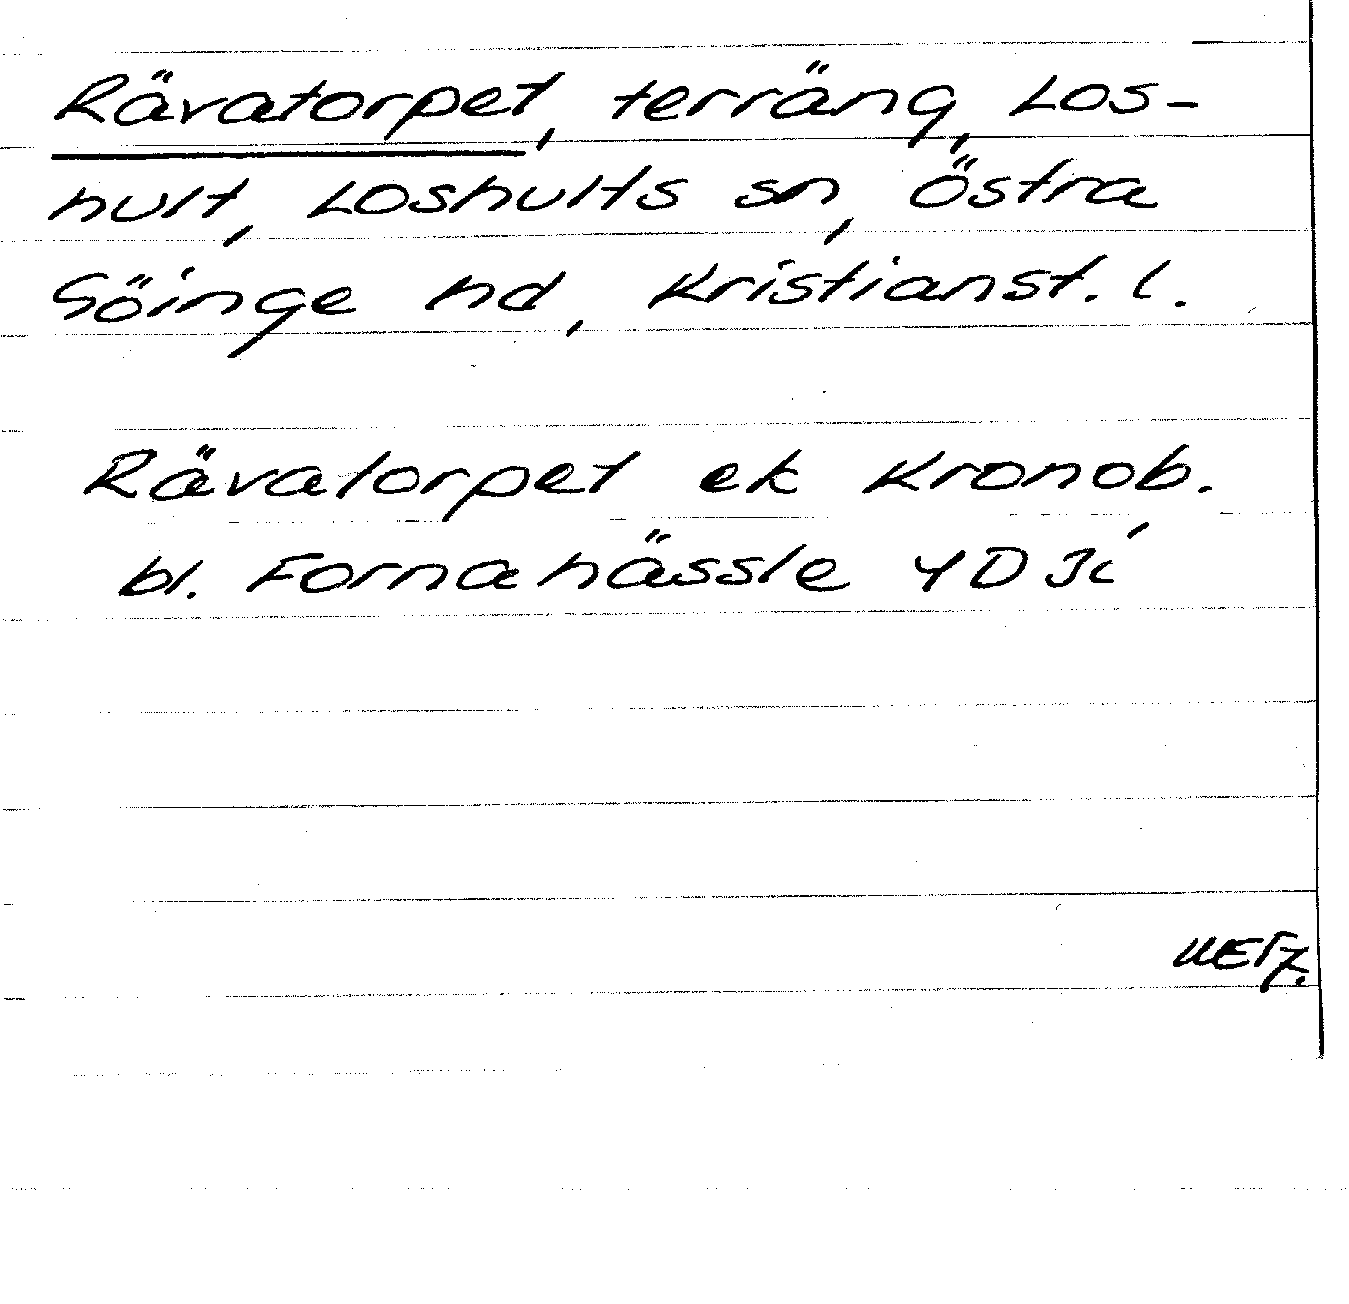 Rävatorpet, terräng, Los-
hult, Loshults sn, Östra
Göinge hd, Kristianst. l.
Rävatorpet ek Kronob.
bl. Fornahässle 4D